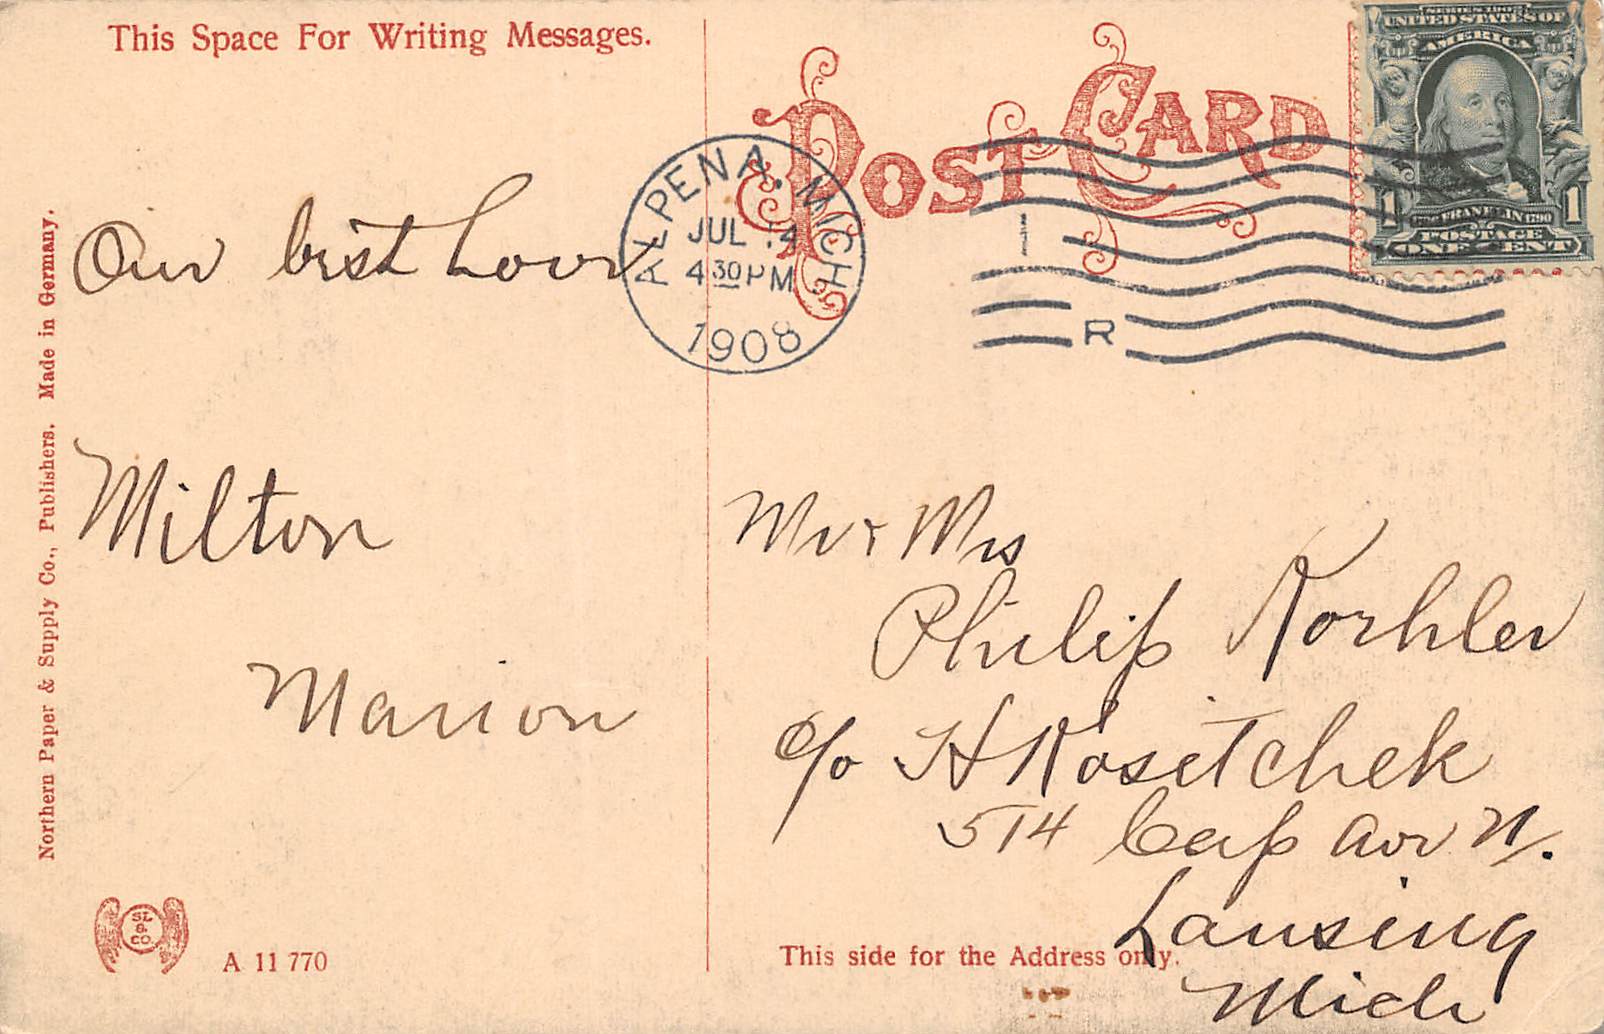 This Space For Writing Messages.
POST CARD
SERIES 1902
UNITED STATES OF
AMERICA
1 1
FRANKLIN 1790
POSTAGE
ONE CENT
ALPENA. MICH
JUL 14
4 30 PM
1908
I
R
Our best Love
Milton
Marion
Mr & Mrs
Philip Koehler
c/o H Kositchek
514 Cap Ave N.
Lansing
Mich
This side for the Address only.
Northern Paper & Supply Co., Publishers. Made in Germany.
SL
&
CO.
A 11 770